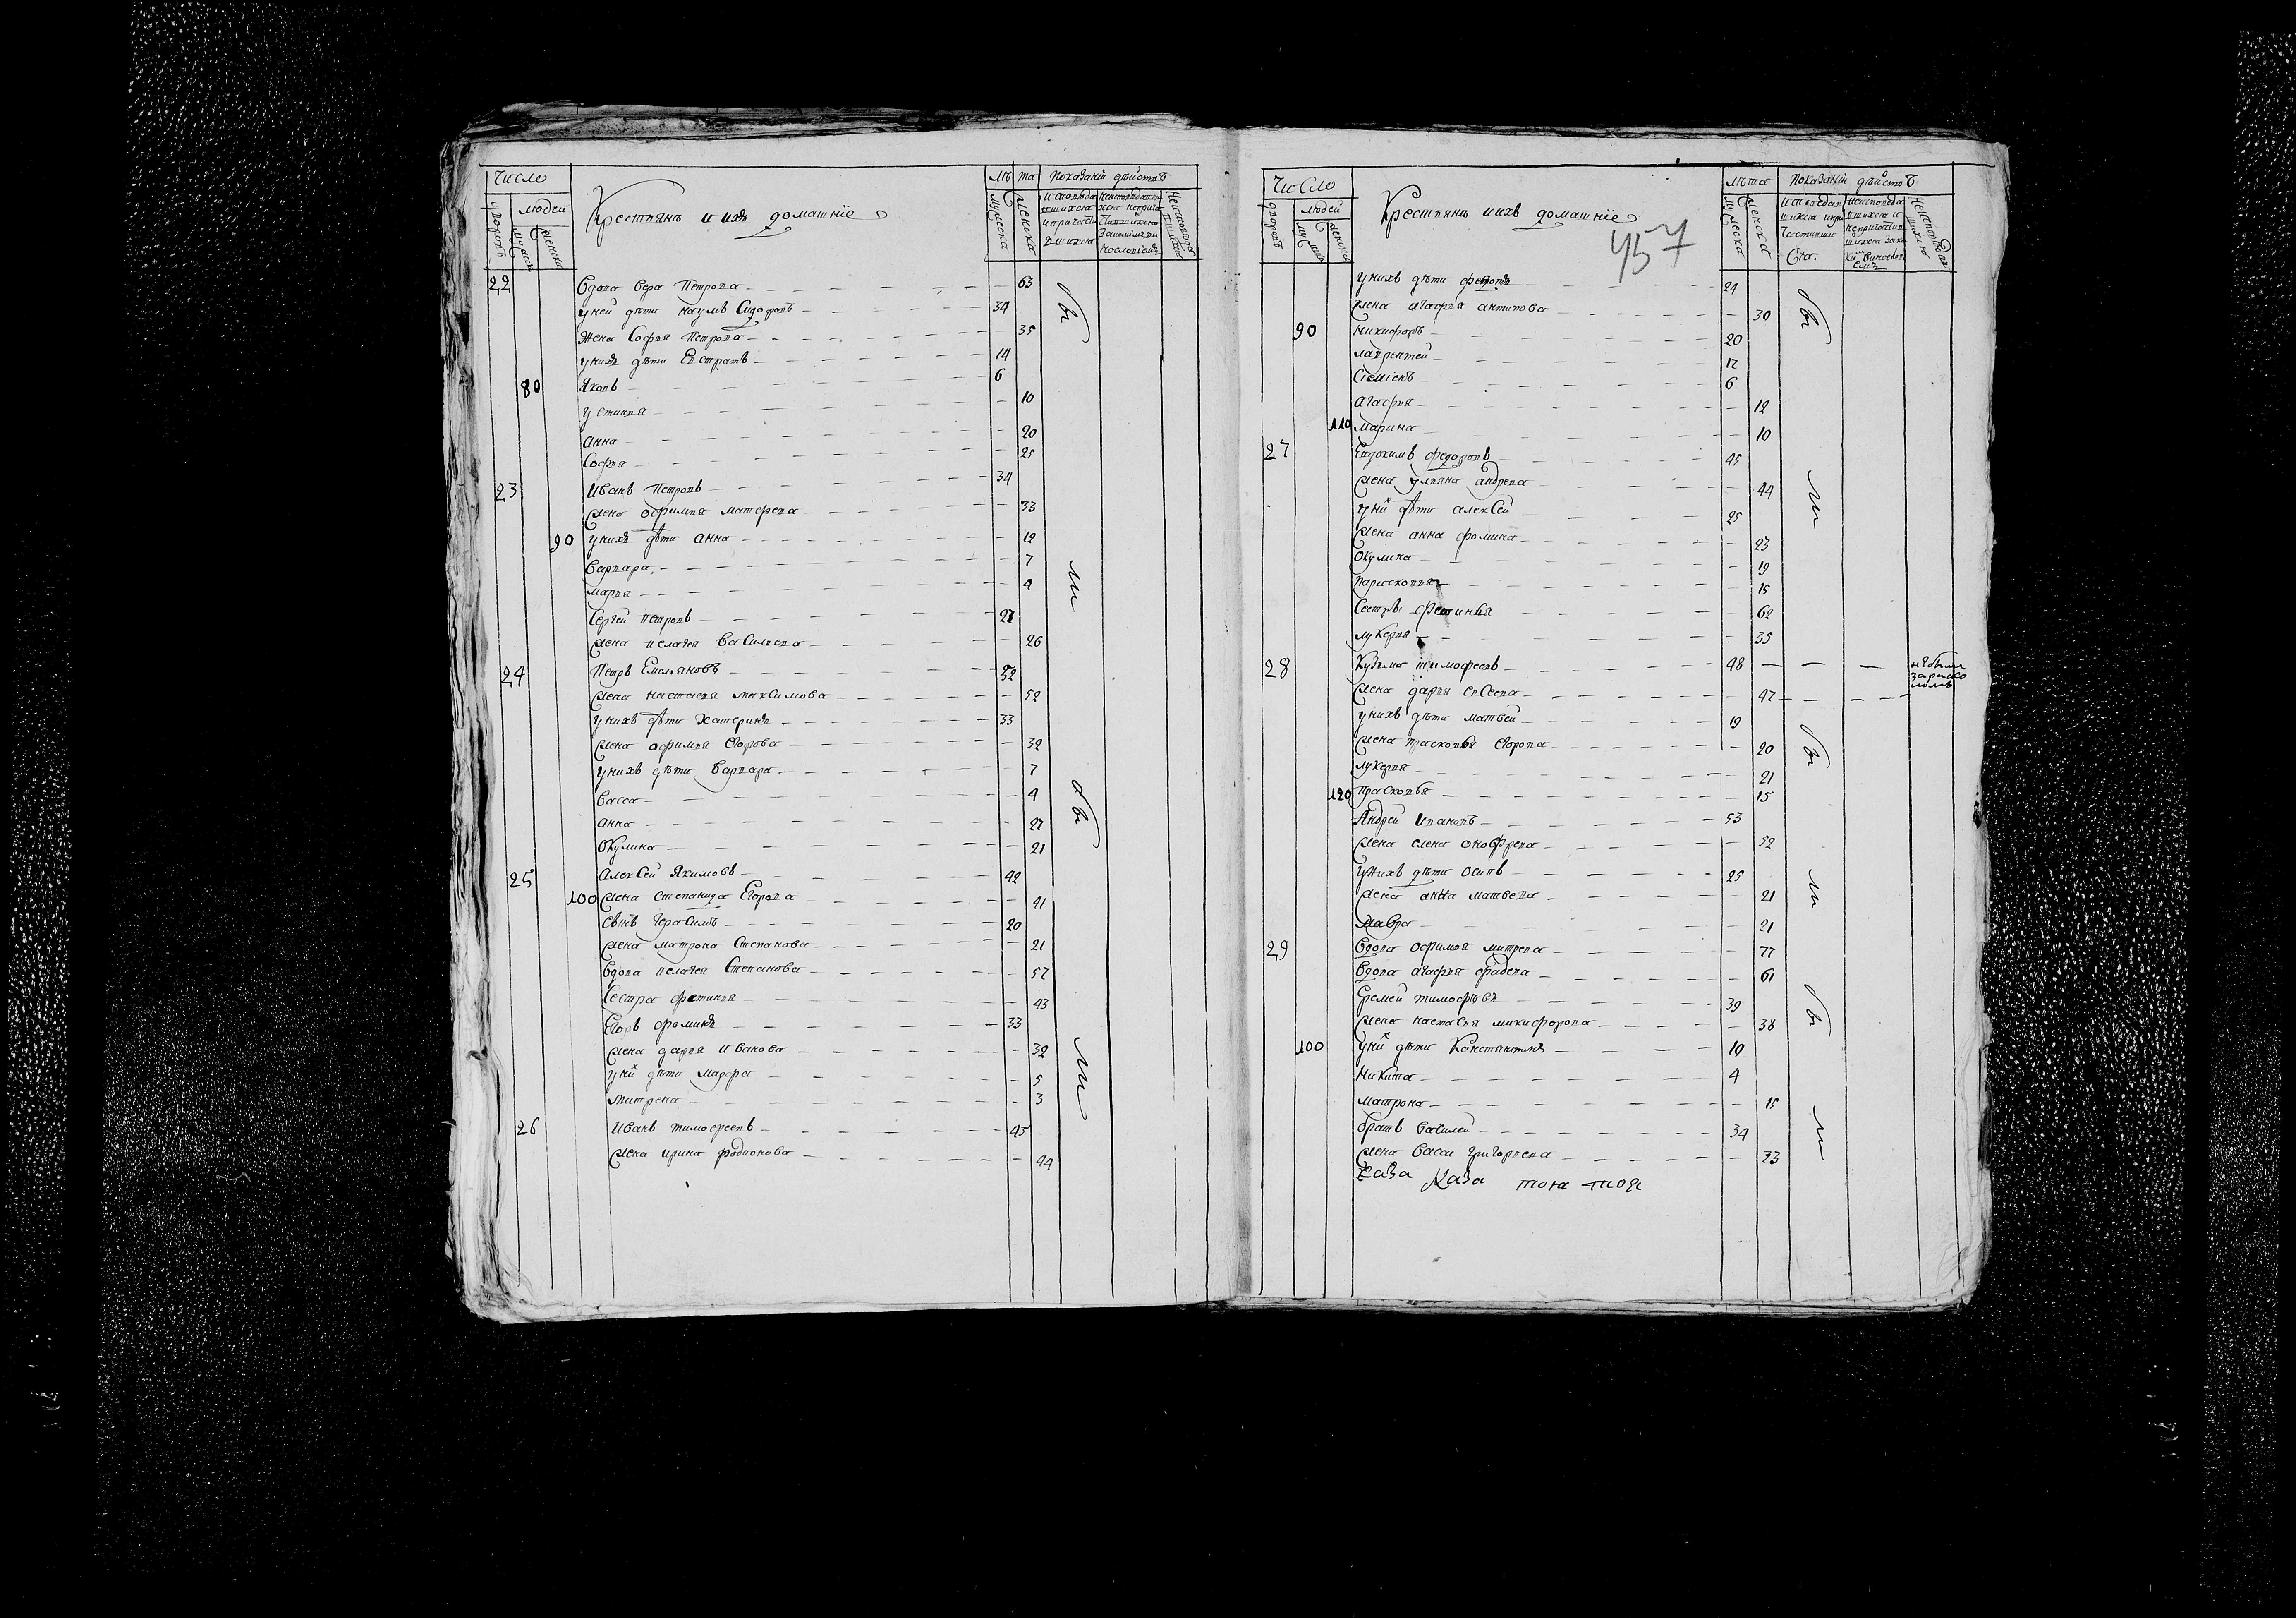 Число
людей
дворовъ
мужска
женска
Крестьянъ и ихъ домашніе
лѣта
мужеска
женска
Показаніи дѣйствъ
22 Вдова Вера Петрова 63
у ней дѣти наумъ Сидоровъ 34
Жена Софья Петрова 35
у нихъ дѣти Евстратъ 14
80 Яковъ 6
устинья 10
анна 20
Софья 25
23 Иванъ Петровъ 34
жена офимья матфева 33
90 у нихъ дѣти анна 12
Варвара 7
марья 4
Сергей петровъ 27
жена пелагея Васильева 26
24 Петръ Емельяновъ 52
жена настасья максимова 52
у нихъ дѣти Катеринъ 33
жена офимья Егорова 32
у нихъ дѣти Варвара 7
Васса 4
анна 27
Окулина 21
25 алексей Якимовъ 42
100 жена степанида Егорова 41
Сынъ Герасимъ 20
жена матрона Степанова 21
Вдова пелагея Степанова 57
Сестра фетинья 43
Егоръ фоминъ 33
жена дарья Иванова 32
у ни дѣти марфа 5
Митрева 3
26 Иванъ тимофеевъ 45
жена ирина фадионова 44
бы
ли
бы
ли
Число
людей
дворовъ
Крестьянъ и ихъ домашніе
457
лѣта
мужеска
женска
Показаніи дѣйствъ
у нихъ дѣти федотъ 24
жена агафья антипова 30
90 никифоръ 20
лаврентей 17
Семіонъ 6
агафья 12
110 марина 10
27 Евдокимъ федоровъ 45
жена ульяна андрева 44
у ни дѣти алексей 25
жена анна фомина 23
Окулина 19
парасковья 15
Сестры фетинья 62
лукерья 35
28 Кузьма тимофеевъ 48 небыли за раско ломъ
жена дарья евсева 47
у нихъ дѣти матвей 19
жена прасковья Егорова 20
лукерья 21
120 Прасковья 15
Андрей Ивановъ 53
жена елена онофрева 52
у нихъ дѣти осипъ 25
жена анна матвева 21
Мавра 21
29 Вдова офимья митрева 77
Вдова агафья фадева 61
Еремей тимофѣевъ 39
жена настасья микифорова 38
100 у ни дѣти Констянтинъ 10
Никита 4
матрона 15
братъ Василей 34
жена Васса григорьева 33
бы
ли
бы
ли
бы
ли